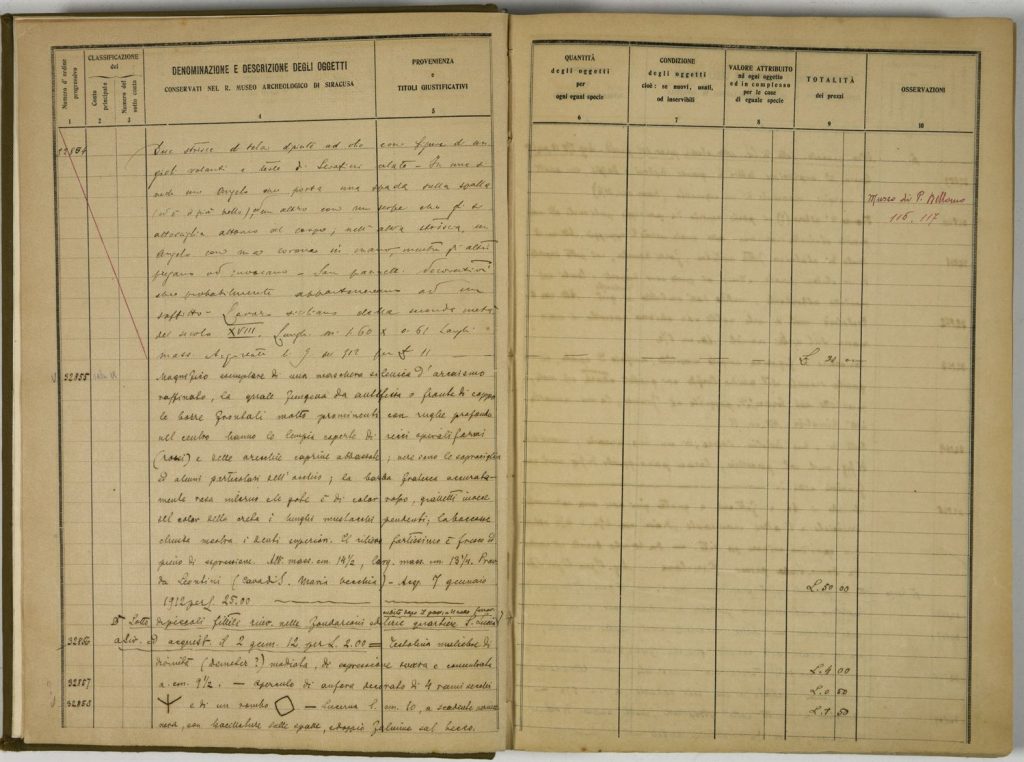 Numero d'ordine progressivo
CLASSIFICAZIONE dei
Conto principale
Numero del sotto conto
DENOMINAZIONE E DESCRIZIONE DEGLI OGGETTI
CONSERVATI NEL R. MUSEO ARCHEOLOGICO DI SIRACUSA
PROVENIENZA
e
TITOLI GIUSTIFICATIVI
1 2 3 4 5
32854
Due strisce di tela dipinte ad olio con figure di an
geli volanti e teste di Serafini
vede uno Angelo che porta una spada sulla spalla
un altro con un serpe che
attorciglia attorno al corpo; nell'altra striscia, un
Angelo con una corona in mano, mentre gli altri
pregano ed invocano - Son pannelli decorativi
che probabilmente appartenevano ad un
soffitto - Lavoro siciliano della seconda metà
del secolo XVIII. Lungh. m. 1.60 x 0.61 Largh.
mass. Acquistati l. 9 912 per £ 11 —
32855
Magnifico esemplare di una maschera silenica d'arcaismo
raffinato, la quale fungeva da antefissa o fronte di coppo
le borse frontali molto prominenti con rughe profonde
nel centro hanno le tempia coperte di ricci spiraliformi
(rossi) e delle orecchie caprine abbassate; nere sono le sopraciglia
ed alcuni particolari dell'occhio; la barba accurata-
mente rasa intorno alle gote è di color rosso, invece
del color della creta i lunghi mustacchi pendenti; la bocca
chiusa mostra i denti superiori. Il rilievo fortissimo è fresco e
pieno di espressione. Alt. mass. cm. 14½, larg. mass. cm. 13¼. Prov.
da Leontini (Cava di S. Maria Vecchia) - Acq. 7 gennaio
1912 per £ 25.00
Lotto di piccoli fittili rinv. nelle fondazioni quartiere S. Lucia
32856
acquist. il 2 genn. 12 per L. 2.00 = Testolina muliebre di
divinità (Demeter?) modiata, di espressione severa e concentrata
32857
a. cm. 9½. — Operculo di anfora decorato di 4 rami secchi
32858
e di un rombo — Lucerna l. cm. 10, a scadente vernice
nera, con baccellature sulle spalle, e doppio sul becco.
QUANTITÀ
degli oggetti
per
ogni egual specie
CONDIZIONE
degli oggetti
cioè: se nuovi, usati,
od inservibili
VALORE ATTRIBUITO
ad ogni oggetto
od in complesso
per le cose
di eguale specie
TOTALITÀ
dei prezzi
OSSERVAZIONI
6 7 8 9 10
Museo di P. Bellomo
116, 117
L. 50 00
L. 4 00
L. 0 50
L. 1 50